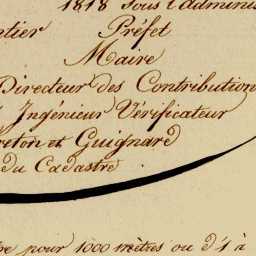 1818 Sous l'adminis
ntier Préfet
Maire
Directeur des Contribution
Ingénieur Vérificateur
reton et Guignard
du Cadastre .
pour 1000 mètres ou d'1 à